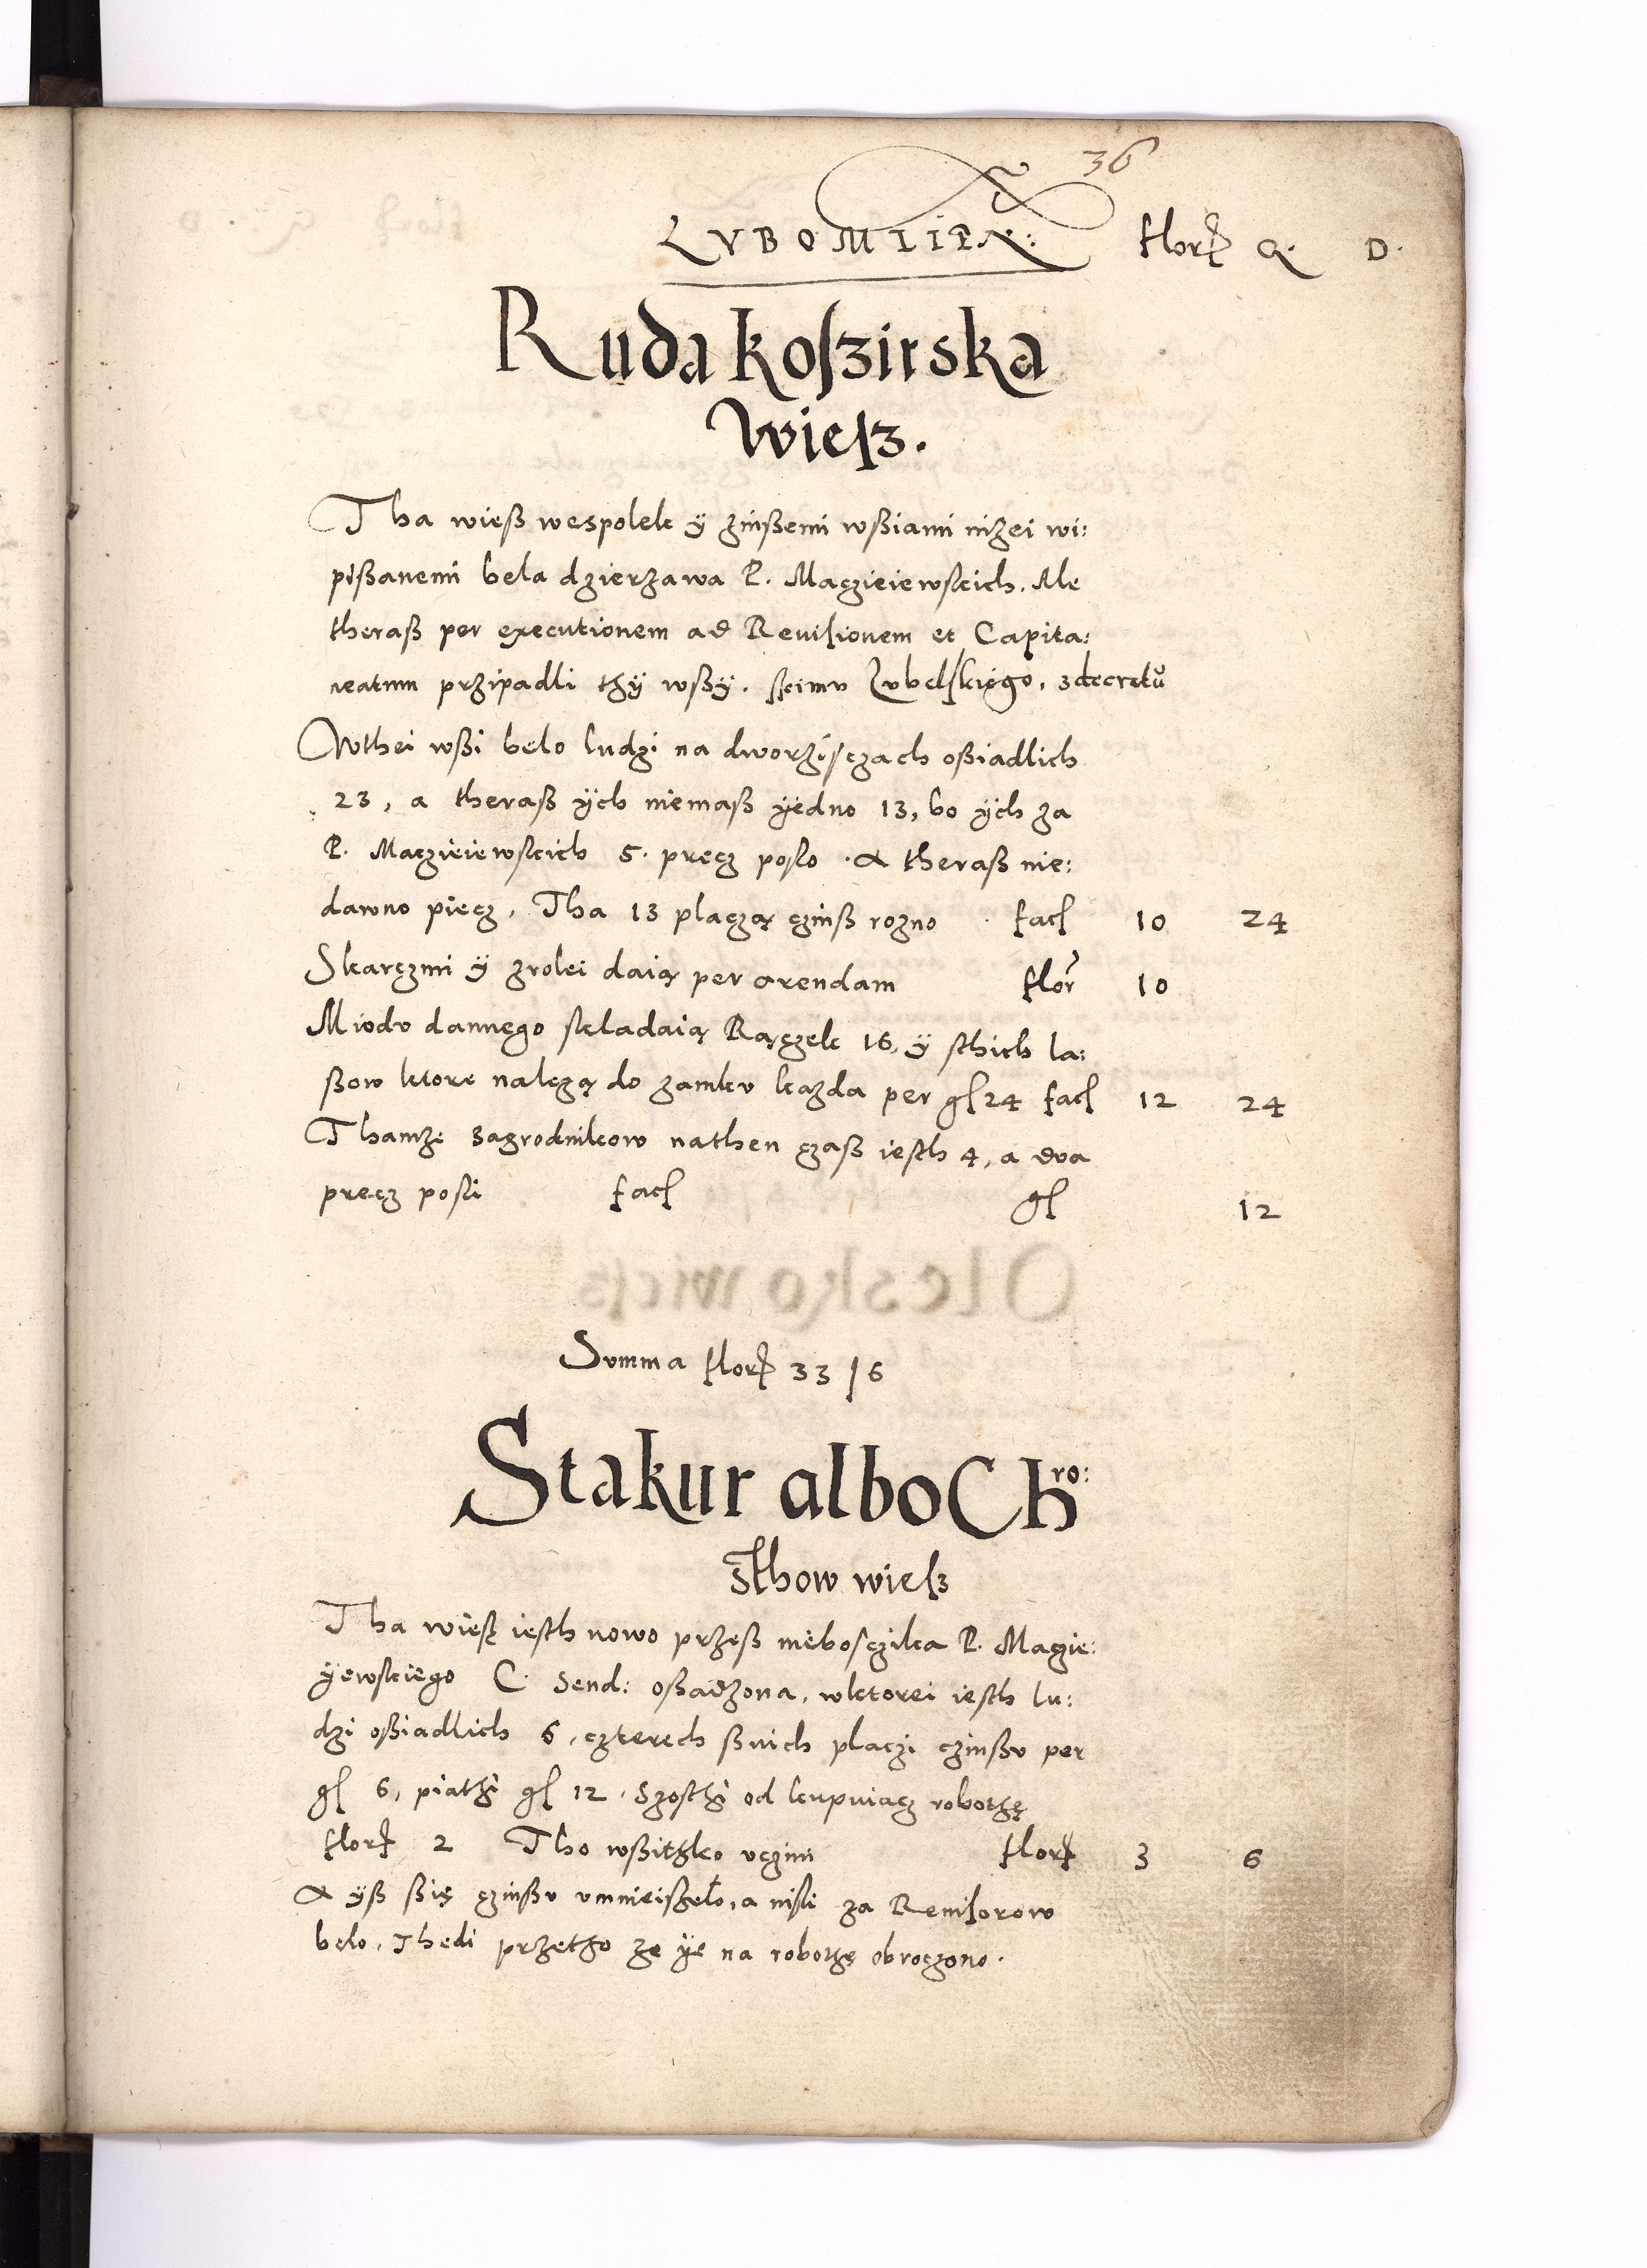 36
LVBOMLIEN: florz G. D.
Ruda koszirska
Wiesz.
Tha wieß wespolek ÿ zinßemi wßiami niżei wi:
pißanemi bela dzierżawa P. Maczieiewskich. Ale
theraß per executionem ad Reuisionem et Capita:
neatum przipadli thÿ wßÿ. sseimu Lubelskiego, zdecretu
Wthei wßi belo ludzi na dworżisczach oßiadlich
23, a theraß ÿch niemaß ÿedno 13, bo ÿch za
P. Maczieiewskich 5. precz poslo. A theraß nie:
dawno piecz, Tha 13 placzą czinß rozno facs 10 24
Skarczmi ÿ zrolei daią per arendam flor 10
Miodu dannego składaią Rączek 16, ÿ sthich la:
ßow ktore należą do zamku każda per gs 24 facs 12 24
Thamże zagrodnikow nathen czaß iesth 4, a dva
precz posli facs gs 12
Summa florz 33 / 6
Stakur albo Chro:
sthow wiesz
Tha wieß iesth nowo przeß niebosczika P. Maczie:
ÿewskiego C. Send: oßadzona, wktorei iesth lu:
dzi oßiadlich 6, czterech ßnich placzi czinßu per
gs 6, piathi gs 12. Szosthi od kupuiacz robothę
florz 2 Tho wßithko uczini florz 3 6
A ÿß ßię czinßu umnieißelo, a nisli za Reuisorow
belo, Thedi przetho ze ÿe na robothę obroczono.